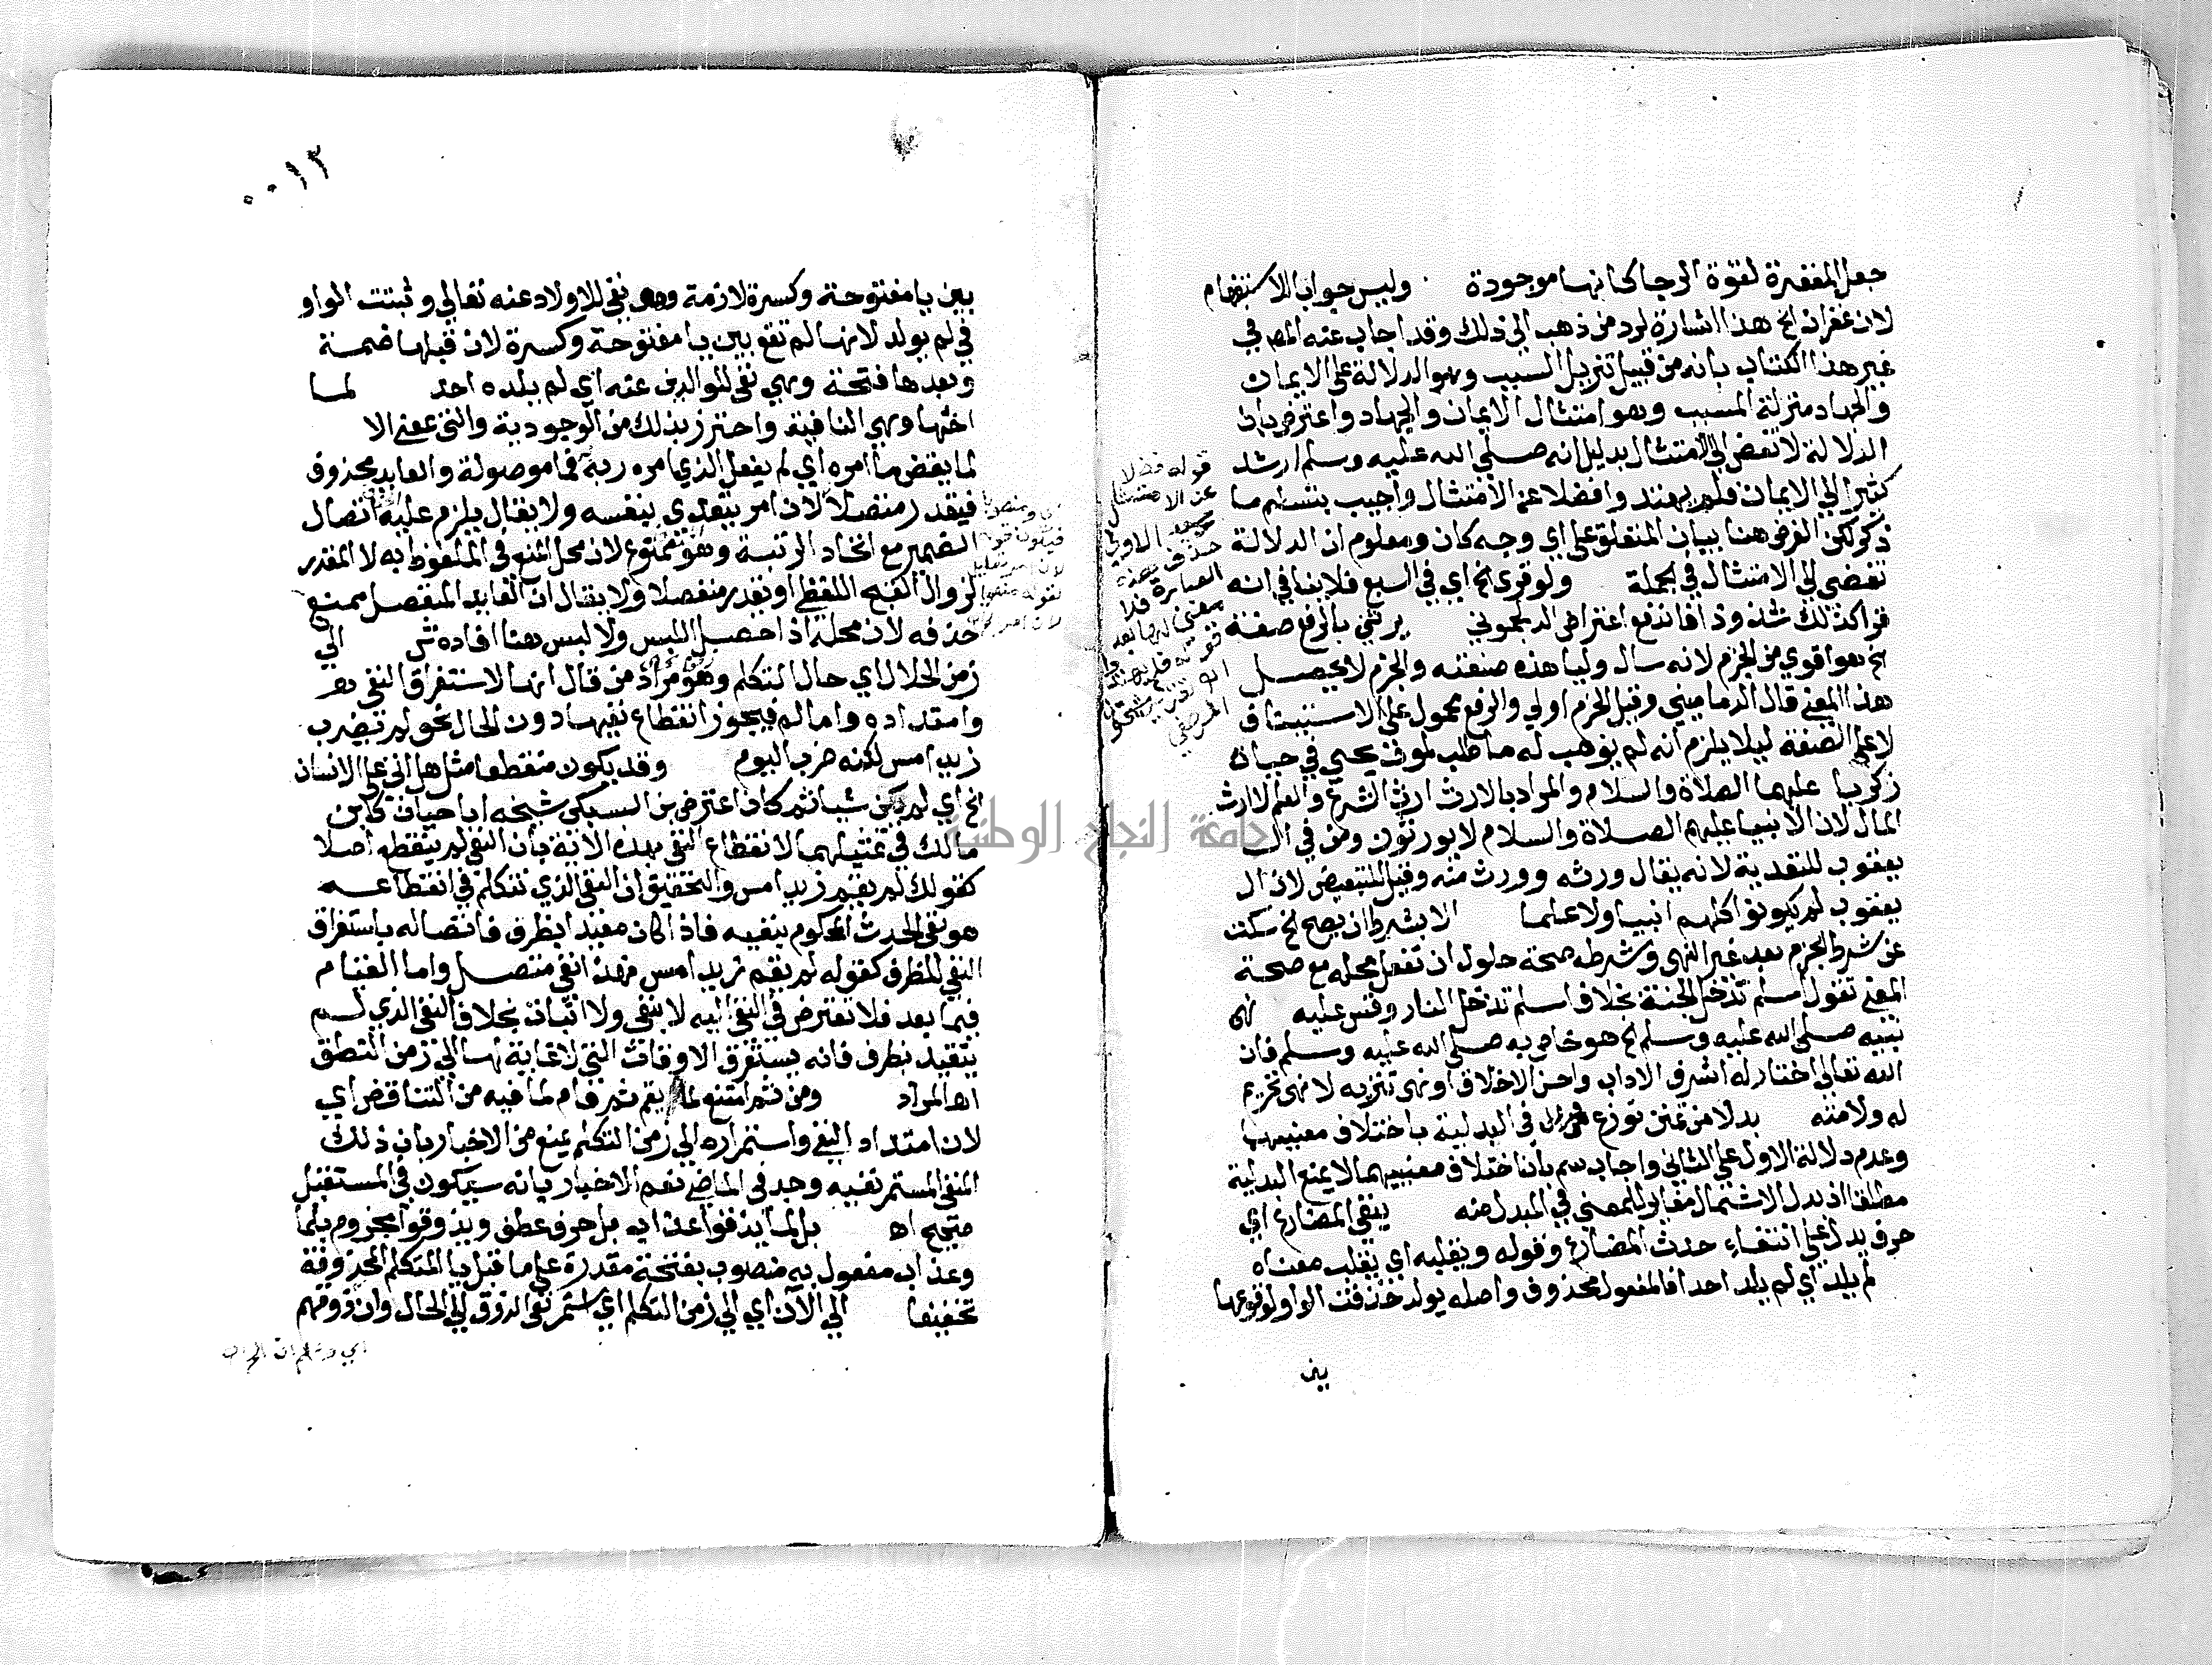 جعل المغفرة لقوة الرجا كانها موجودة وليس جوابا للاستفهام
لان غفران الخ هذا اشارة لرد من ذهب الي ذلك وقد اجاب عنه المص في
غير هذا الكتاب بانه من قبيل تنزيل السبب وهو الدلالة علي الايمان
والجهاد منزلة المسبب وهو امتثال الايمان والجهاد واعترض بان
الدلالة لا تفضي الي الامتثال بدليل انه صلي الله عليه وسلم ارشد
كثيرا الي الايمان فلم يهتد وافضلا عن الامتثال واجيب بتسليم ما
ذكر لكن الغرض هنا بيان المتعلق علي اي وجه كان ومعلوم ان الدلالة
تفضي الي الامتثال في الجملة ولو قري الخ اي في السبع فلا ينافي انه
قرا كذلك شذوذا فاندفع اعتراض الدلجموني يرثني بالرفع صفة
الخ هو اقوي من الجزم لانه سال وليا هذه صفته والجزم لا يحصل
هذا المعني قال الدماميني وقيل الجزم اولي والرفع محمول علي الاستيناف
لا علي الصفة ليلا يلزم انه لم يوهب له ما طلب لموت يحيي في حياة
زكريا عليهما الصلاة والسلام والمراد بالارث ارث الشرع والعلم لا ارث
المال لان الانبيا عليهم الصلاة والسلام لا يورثون ومن في ال
يعقوب للتعدية لانه يقال ورثه وورث منه وقيل للتبعيض لان ال
يعقوب لم يكونوا كلهم انبيا ولا علما الا بشرط ان يصح الخ سكت
عن شرط الجزم بعد غير النهي وشرطه صحة حلول ان تفعل محله مع صحة
المعني تقول اسلم تدخل الجنة بخلاف اسلم تدخل النار وقس عليه نهي
نبيه صلي الله عليه وسلم الخ هو خاص به صلي الله عليه وسلم فان
الله تعالي اختار له اشرف الاداب واحسن الاخلاق او نهي تنزيه لا نهي تحريم
له ولامته بدلا من تمنن نوزع في البدلية باختلاف معنييهما
وعدم دلالة الاول علي الثاني واجاب سم بان اختلاف معنييهما لا يمنع البدلية
مطلقا اذ بدل الاشتمال مغاير للمعني في المبدل منه ينفي المضارع اي
حرف يدل علي انتفاء حدث المضارع وقوله ويقلبه اي يقلب معناه
لم يلد اي لم يلد احدا فالمفعول محذوف واصله يولد حذفت الواو لوقوعها
بين
قوله فضلا
عن الامتثال
٠٠١٣
بين يا مفتوحة وكسرة لازمة وهو نفي للاولاد عنه تعالي وثبتت الواو
في لم يولد لانها لم تقع بين يا مفتوحة وكسرة لان قبلها ضمة
وبعدها فتحة وهي نفي للوالدين عنه اي لم يلده احد لما
اختها وهي النافية واحترز بذلك من الوجودية والتي بمعني الا
لما يقض ما امره اي لم يفعل الذي امره ربه فما موصولة والعايد محذوف
فيقدر منفصلا لان امر يتعدي بنفسه ولا يقال يلزم عليه اتصال
الضمير مع اتحاد الرتبة وهو ممنوع لان محل منعه في الملفوظ به لا المقدر
لزوال القبح اللفظي او نقدر منفصلا ولا يقال ان العايد المنفصل يمتنع
حذفه لان محله اذا حصل اللبس ولا لبس هنا افاده ش الي
زمن الحلال اي حال التكلم وهو مراد من قال انها لاستغراق النفي
وامتداده واما لم فيجوز انقطاع نفيها دون الحال نحو لم تضرب
زيدا امس لكنه ضرب اليوم وقد يكون منقطعا مثل هل اتي علي الانسان
الخ اي لم يكن شيا ثم كان اعترض بن السبكي شيخه ابا حيان كابن
مالك في تمثيلهما لانقطاع النفي بهذه الاية بان النفي لم ينقطع اصلا
كقولك لم يقم زيد امس والتحقيق ان النفي الذي نتكلم في انقطاعه
هو نفي الحدث المحكوم بنفيه فاذا كان مقيدا بظرف فاتصاله باستغراق
النفي للظرف كقوله لم يقم زيد امس فهذا نفي متصل واما القيام
فيما بعد فلا تعترض في النفي اليه لا بنفي ولا اثبات بخلاف النفي الذي لم
يتقيد بظرف فانه يستغرق الاوقات التي لا غاية لها الي زمن النطق
اه المراد ومن ثم امتنع لما يقم ثم قام لما فيه من التناقض اي
لان امتداد النفي واستمراره الي زمن التكلم يمنع من الاخبار بان ذلك
المنفي المستمر نفيه وجد في الماضي نعم الاخبار بانه سيكون في المستقبل
صحيح اه بل لما يذوقوا عذاب بل حرف عطف ويذوقوا مجزوم بلما
وعذاب مفعول به منصوب بفتحة مقدرة علي ما قبل يا المتكلم المحذوفة
تخفيفا الي الآن اي الي زمن التكلم اي استمر نفي الذوق الي الحال وان ذوقهم
جامعة النجاح الوطنية